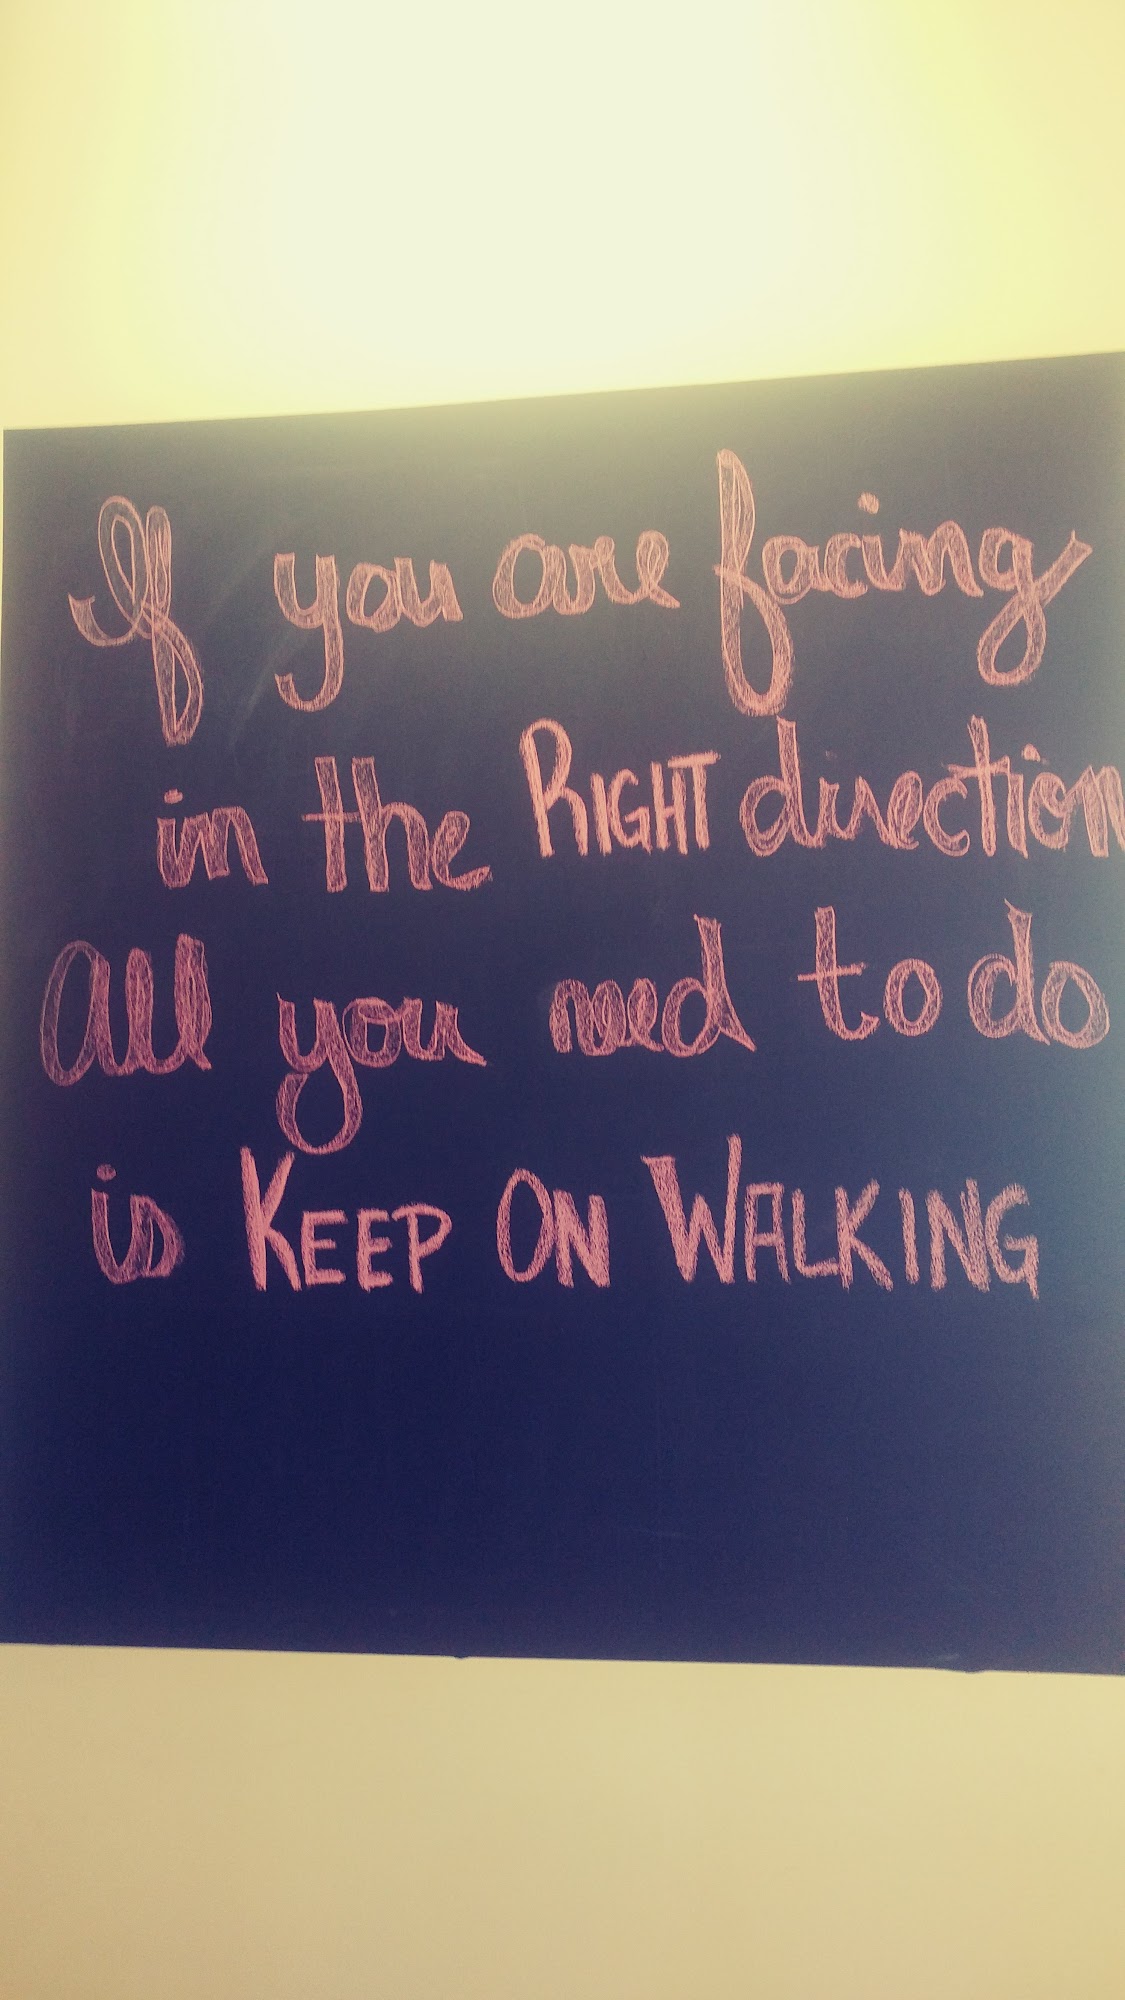 If you are facing
in the RIGHT direction
All you need to do
is KEEP ON WALKING